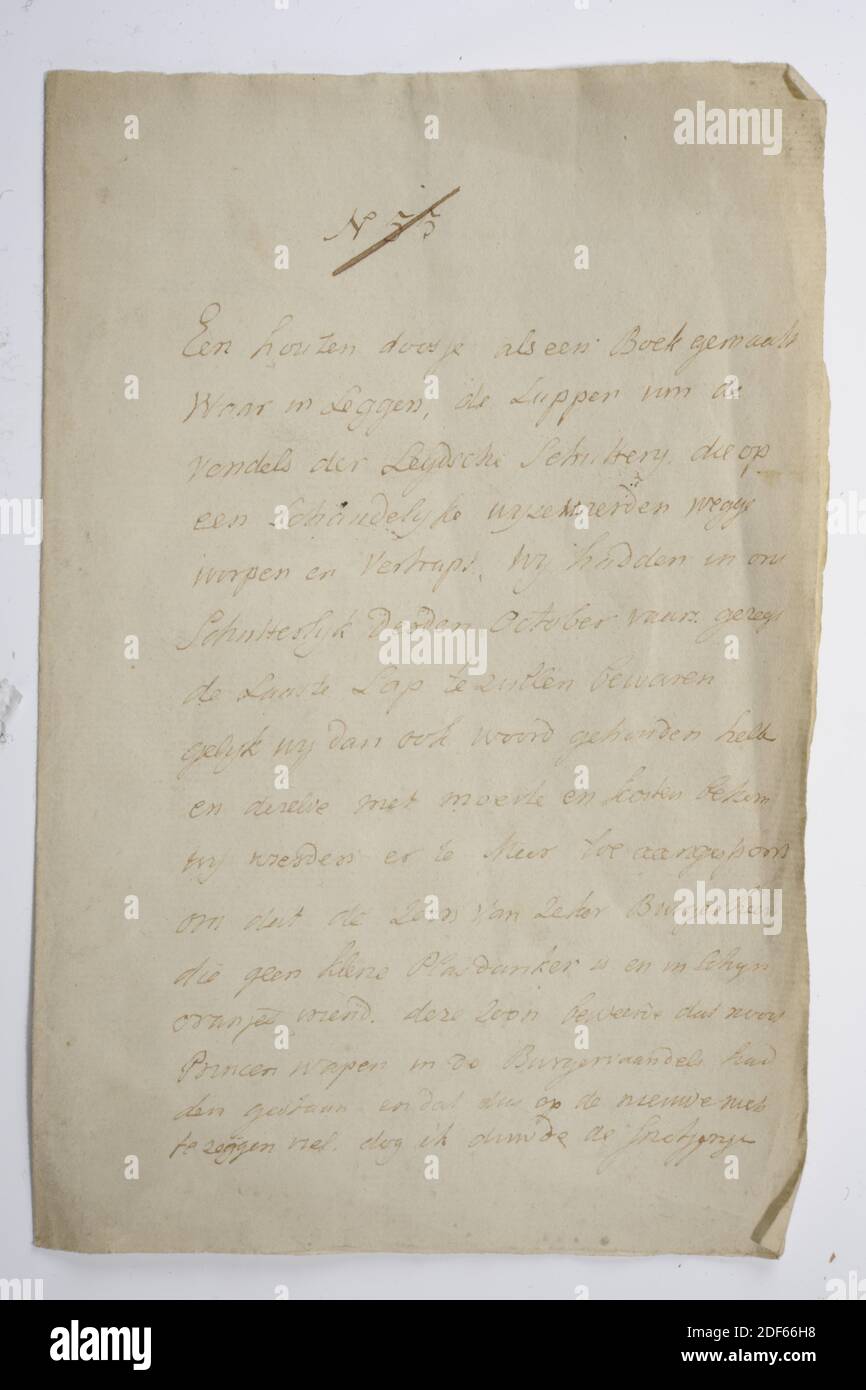 N 55
Een houten doosje als een Boek gemaakt
Waar in Leggen, de Lappen van de
vendels der Leydsche Schuttery. die op
een Schandelyke wyze wierden wegge
worpen en Vertrapt. Wy hadden in ons
Schutterlyk derden October vaars gezegt
de Laaste Lap te zullen bewaren
gelyk wy dan ook woord gehouden hebb
en dezelve met moeite en kosten bekom
wy wierden er te Meer toe aangespoord
om dat de Zoon van Zeker
die geen kleine Plasdanker is en in Schyn
oranje vriend. deze Zoon beweerde dat nooit
Princen wapen in de Burgervaandels had
den gestaan en dat dus op de nieuwe niet
te zeggen viel. dog ik duwde de
alamy
Image ID: 2DF66H8
www.alamy.com